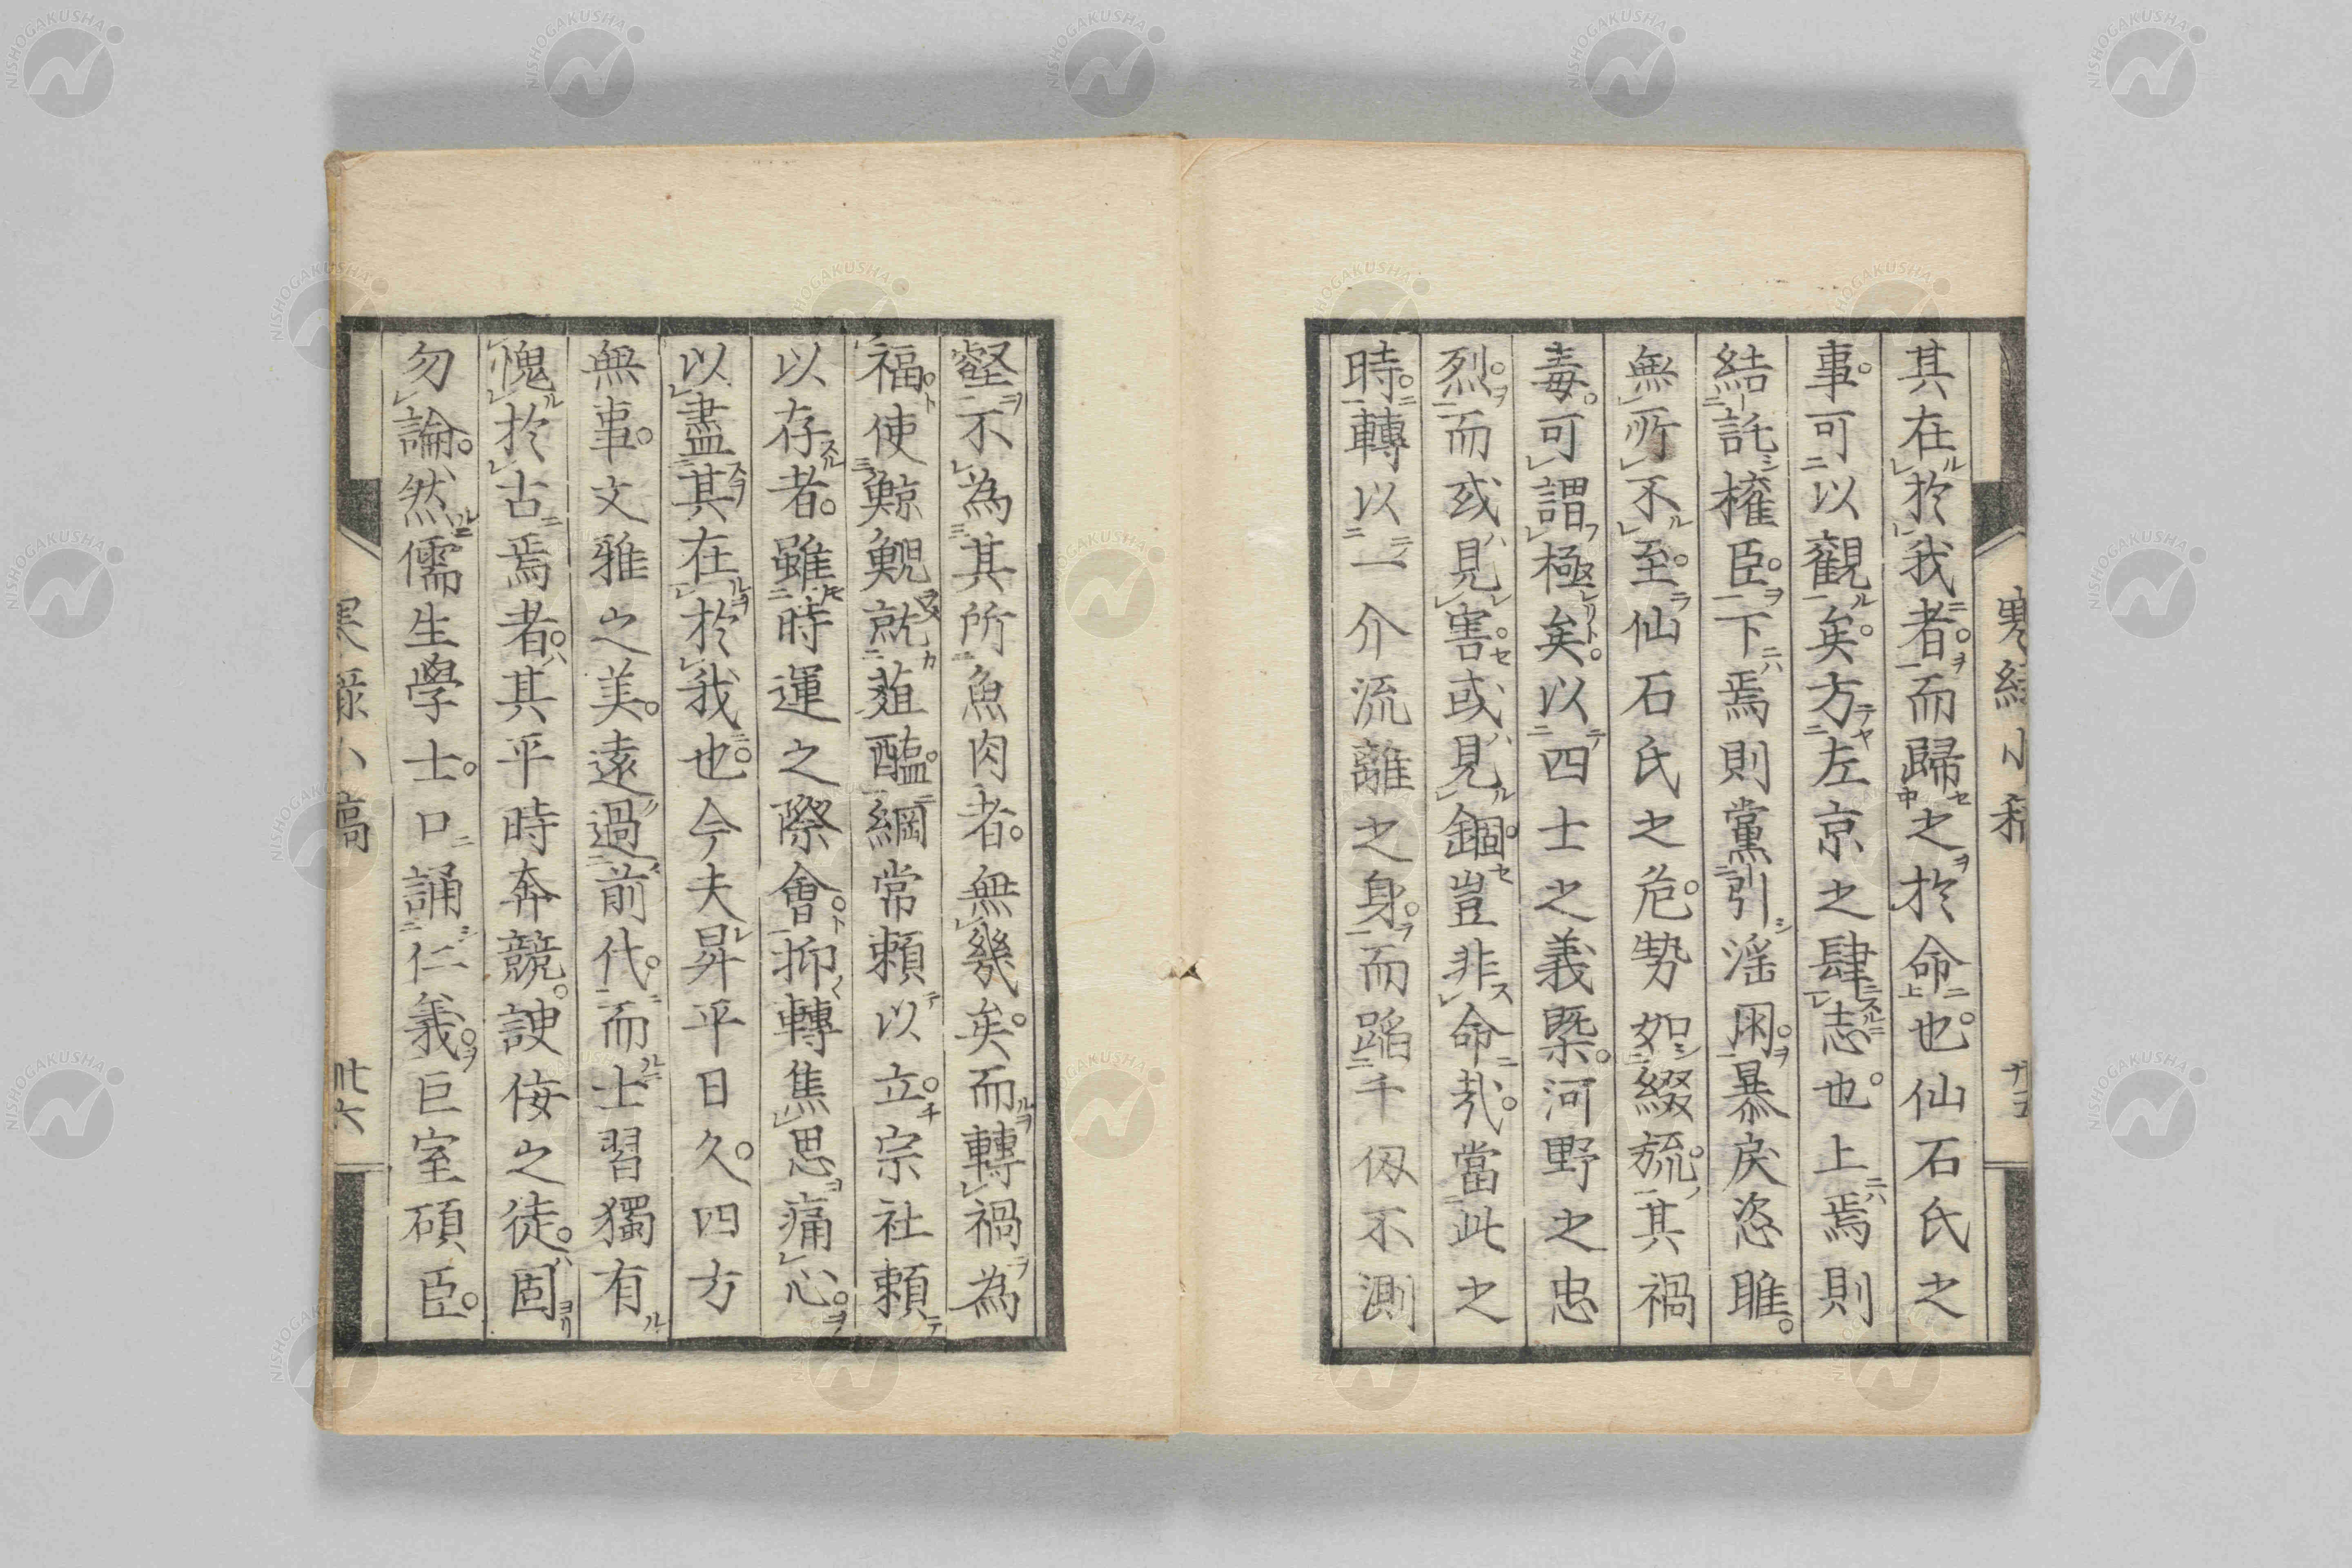 其在於我者。而歸之於命也。仙石氏之
事。可以觀矣。方左京之肆志也。上焉則
結託権臣。下焉則黨引滛朋。暴戾恣雎。
無所不至。仙石氏之危。勢如綴旒。其禍
毒。可謂極矣。以四士之義槩。河野之忠
烈。而或見害。或見錮。豈非命哉。當此之
時。轉以一介流離之身。而蹈千仭不測
壑不為其所魚肉者。無幾矣。而轉禍為
福。使鯨鯢就葅醢。綱常賴以立。宗社賴
以存者。雖時運之際會。抑轉焦思痛心。
以盡其在於我也。今夫昇平日久。四方
無事。文雅之美。遠過前代。而士習獨有
愧於古焉者。其平時奔競。諛侫之徒。固
勿論。然儒生學士。口誦仁義。巨室碩臣。
NISHOGAKUSHA